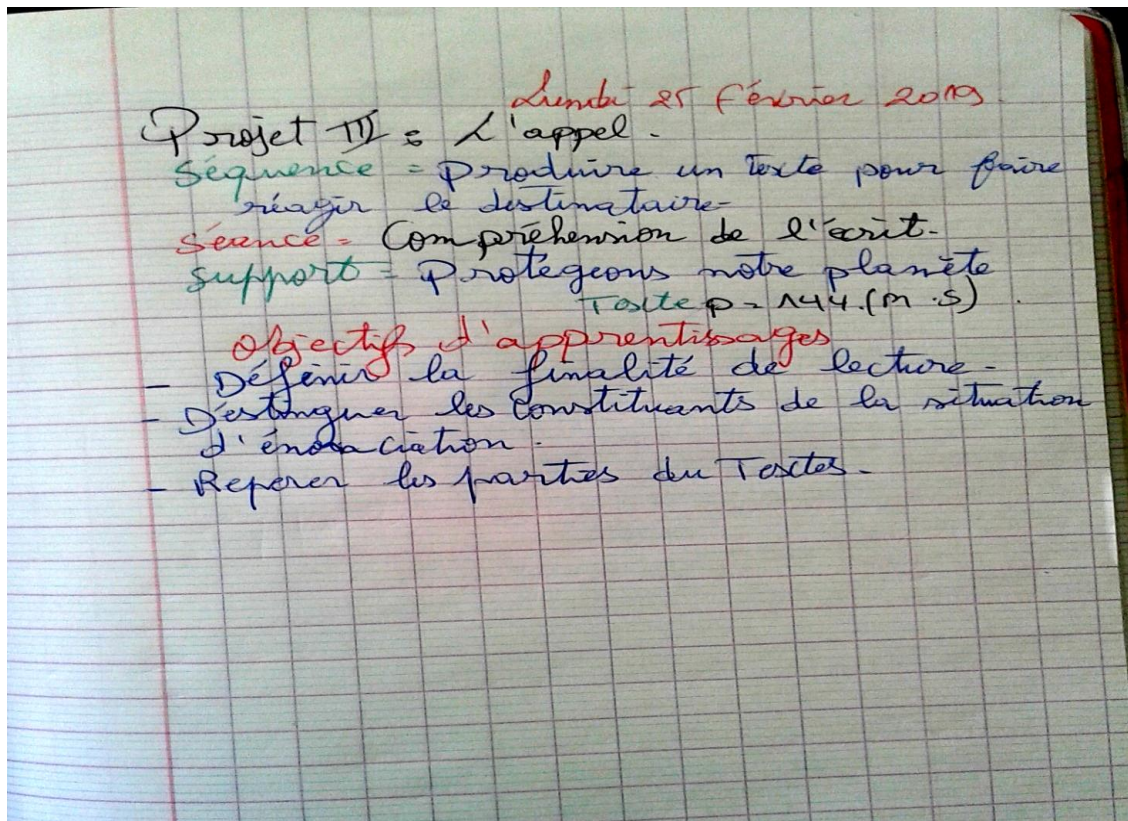 Lundi 25 Février 2019.
Projet III : L'appel.
Séquence = Produire un Texte pour faire
réagir le destinataire-
Séance = Compréhension de l'écrit.
Support = Protégeons notre planète
Texte p = 144. (M.S).
Objectifs d'apprentissages
- Définir la finalité de lecture-
- Distinguer les Constituants de la situation
d'énonciation.
- Reperer les parties du Textes-